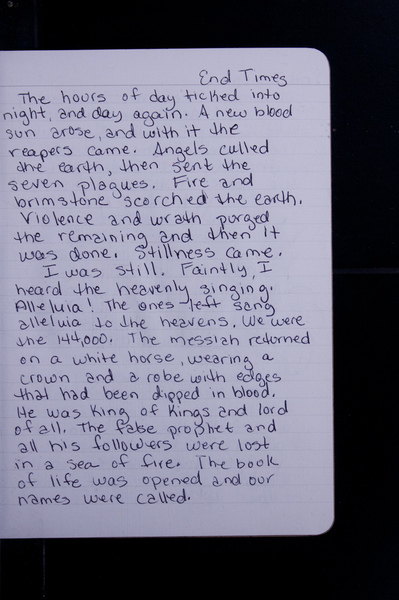 End Times
The hours of day ticked into
night, and day again. A new blood
sun arose, and with it the
reapers came. Angels culled
the earth, then sent the
seven plagues. Fire and
brimstone scorched the earth.
Violence and wrath purged
the remaining and then it
was done. Stillness came.
I was still. Faintly, I
heard the heavenly singing.
Alleluia! The ones left sang
alleluia to the heavens. We were
the 144,000. The messiah returned
on a white horse, wearing a
crown and a robe with edges
that had been dipped in blood.
He was King of Kings and lord
of all. The false prophet and
all his followers were lost
in a sea of fire. The book
of life was opened and our
names were called.